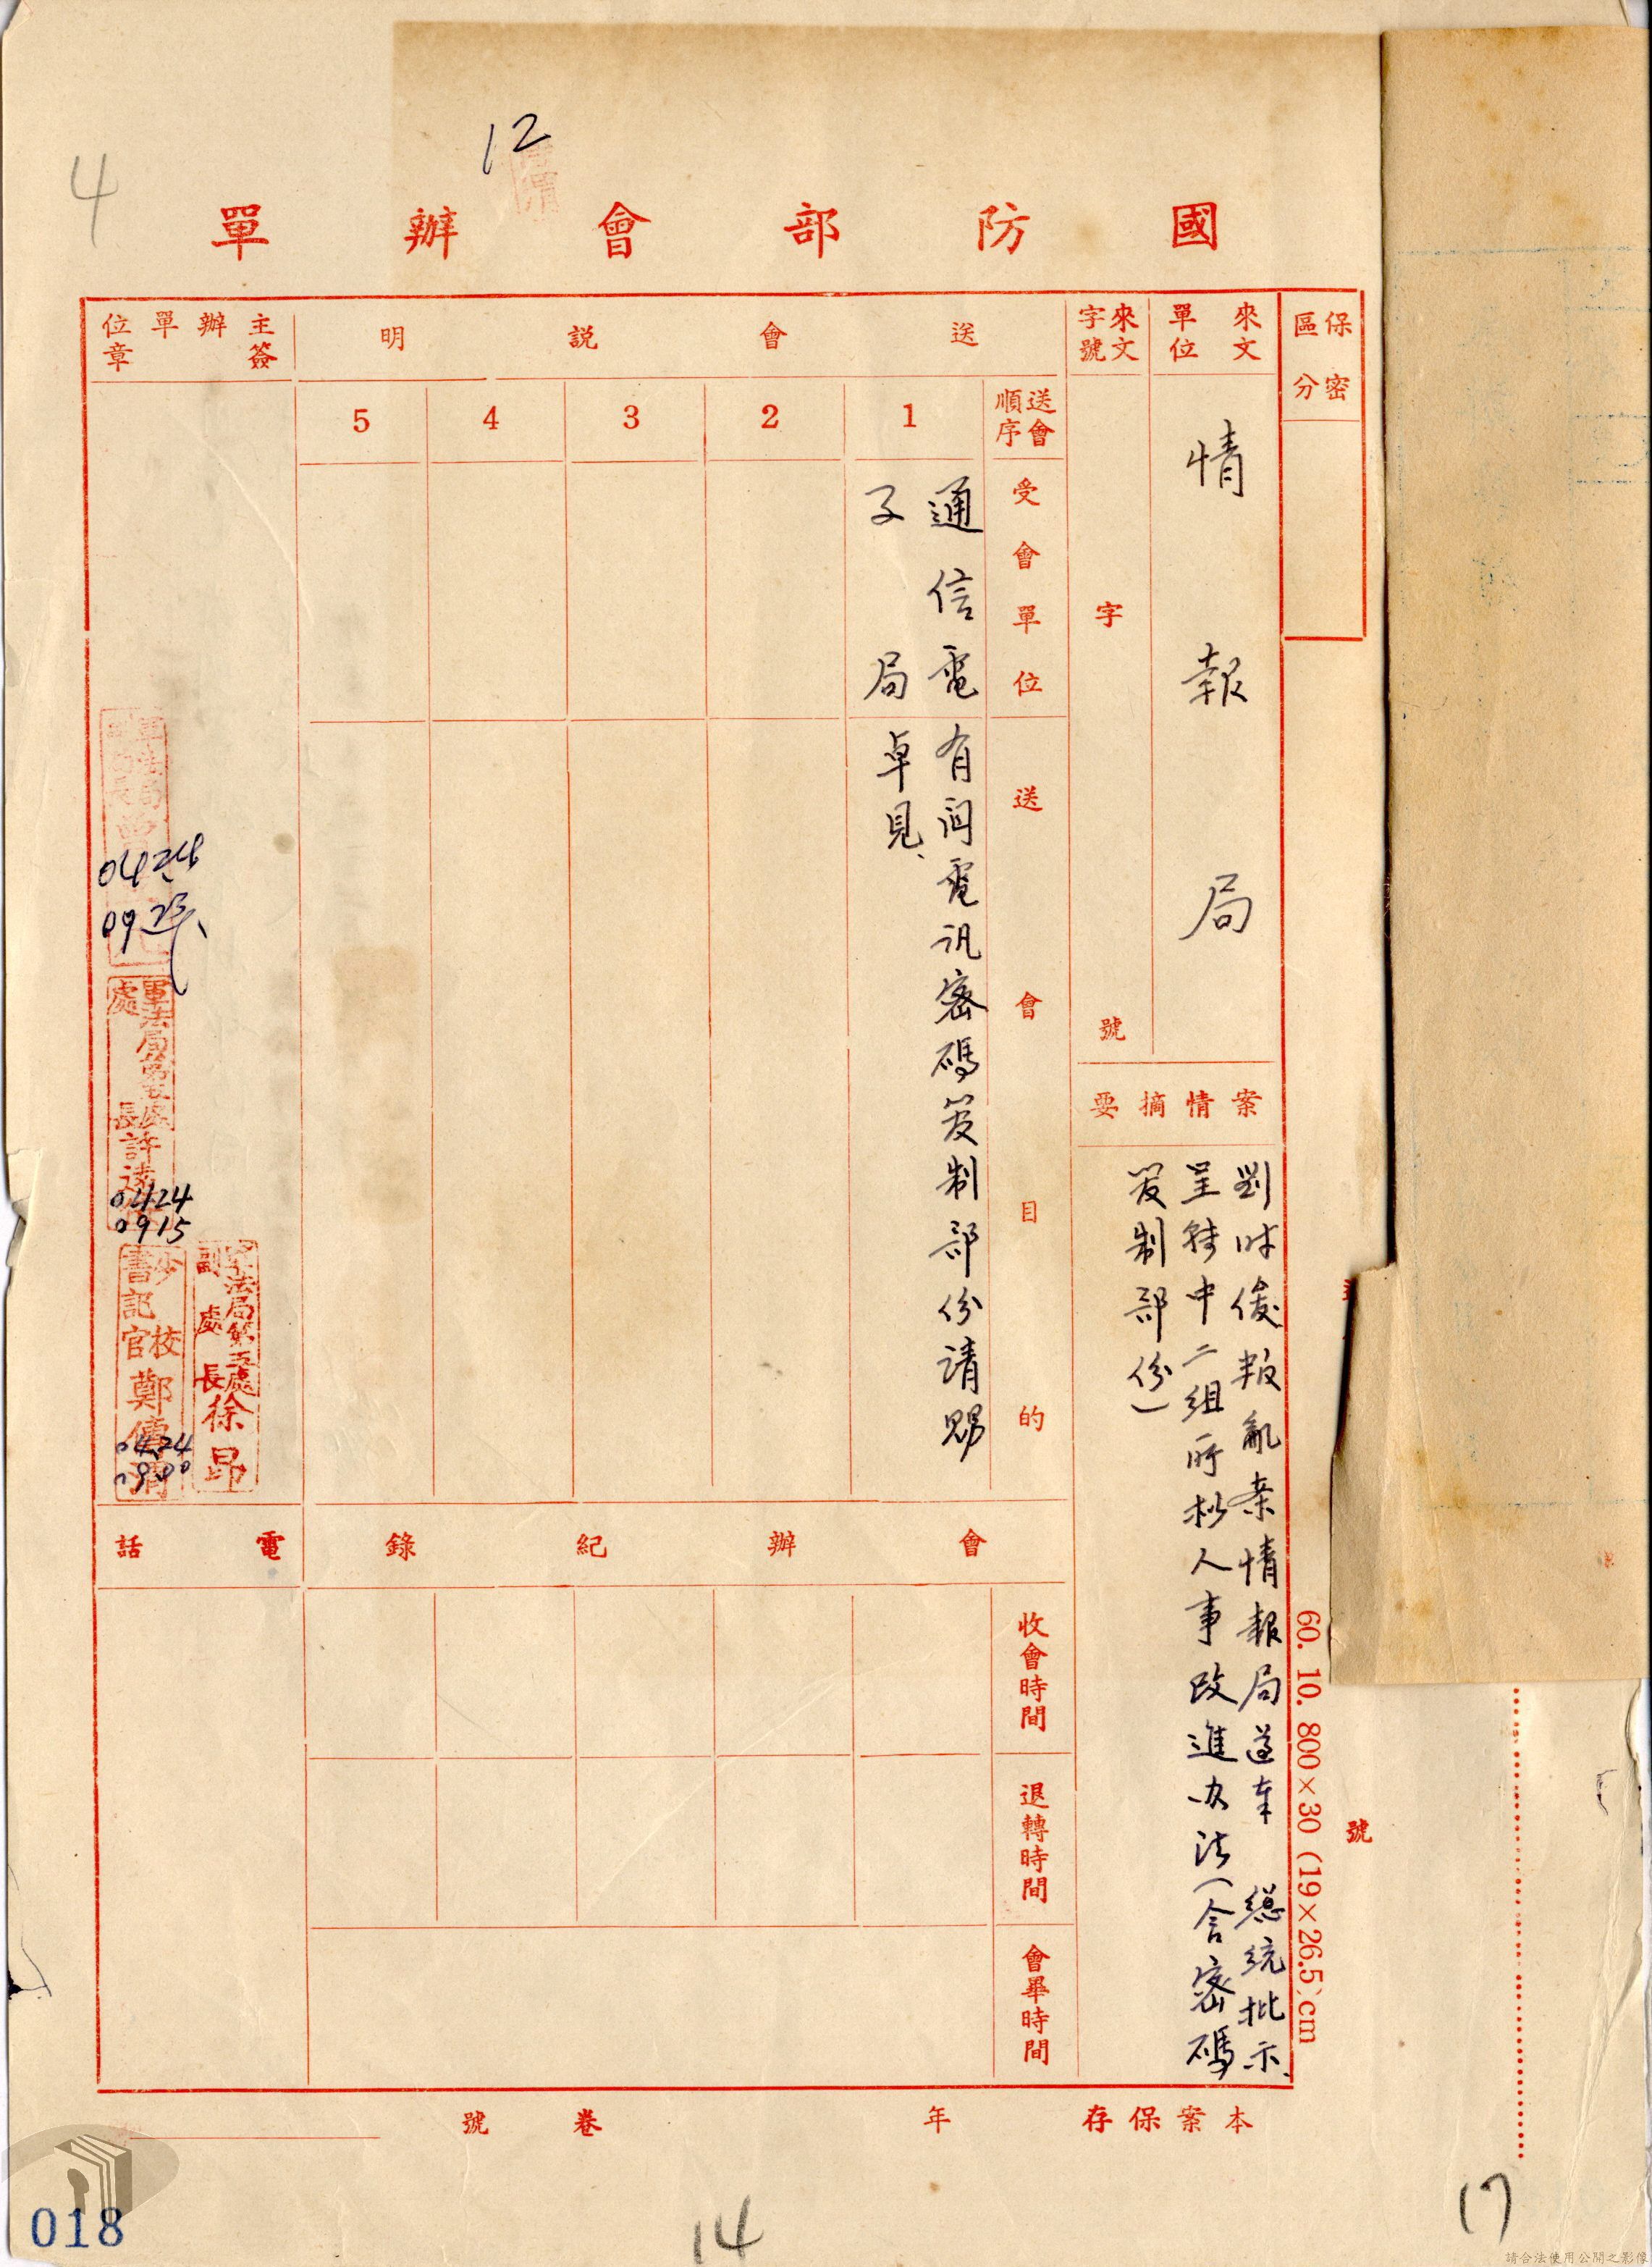 12
4
國防部會辦單
保密區分
來文單位
情報局
來文字號
字
號
案情摘要
劉 俊叛亂案情報局遵奉 總統批示、
呈 中二組所 人事改進办法(含密碼
及制部份)
送會說明
送會順序
1
2
3
4
5
受會單位
通信電
子局
送會目的
有關電訊密碼及制部份請賜
卓見、
主辦單位簽章
0424
軍法局第五處
處長許
0424
0915
軍法局第五處
副處長徐昂
少校
書記官鄭
0424
0900
電話
會辦紀錄
收會時間
退轉時間
會畢時間
60. 10. 800×30 (19×26.5)cm
號
本案保存
年
卷
號
018
14
17
請合法使用公開之影像